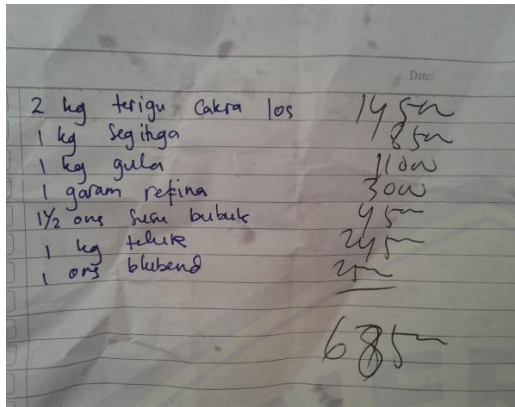 Date:
2 kg terigu Cakra los 14500
1 kg Segitiga 8500
1 kg gula 11000
1 garam refina 3000
1½ ons susu bubuk 4500
1 kg teluk 24500
1 ons blubend 2500
68500